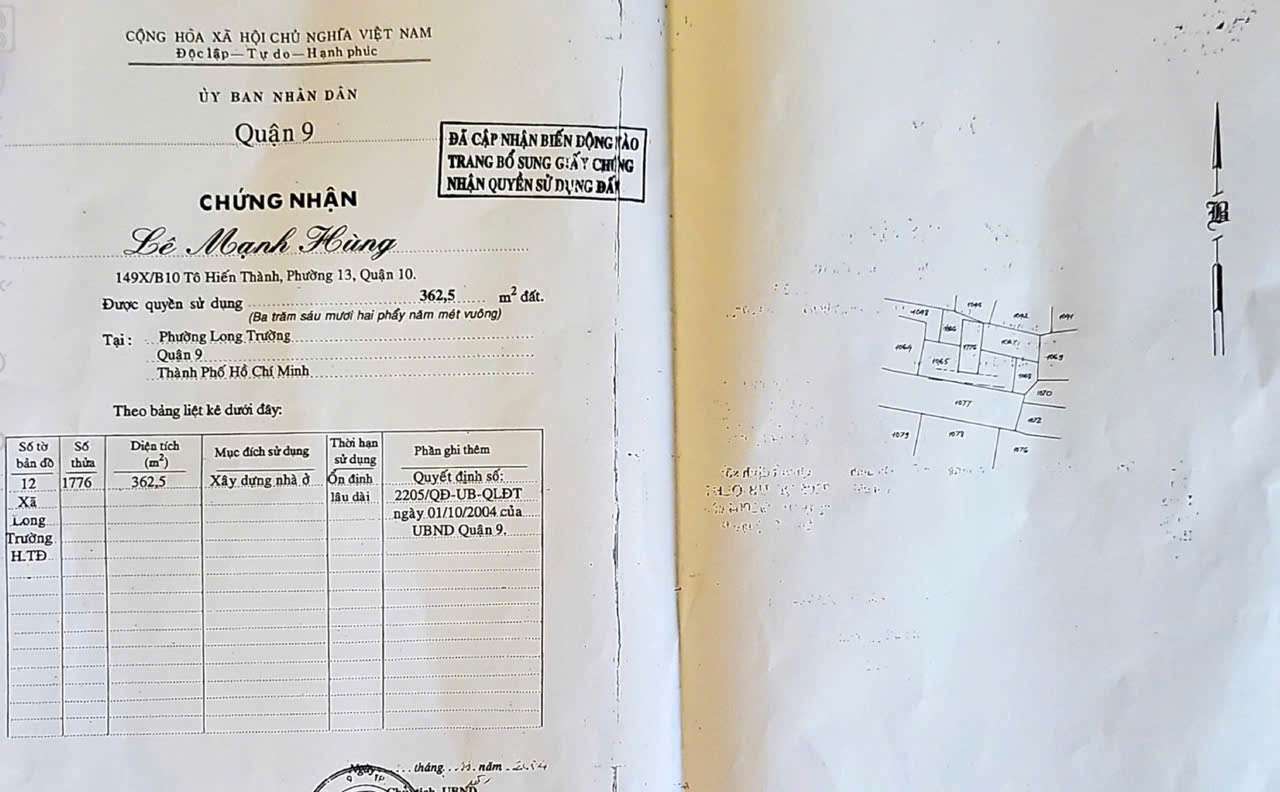 CỘNG HÒA XÃ HỘI CHỦ NGHĨA VIỆT NAM
Độc lập — Tự do — Hạnh phúc
ỦY BAN NHÂN DÂN
Quận 9
ĐÃ CẬP NHẬN BIẾN ĐỘNG VÀO
TRANG BỔ SUNG GIẤY CHỨNG
NHẬN QUYỀN SỬ DỤNG ĐẤT
CHỨNG NHẬN
Lê Mạnh Hùng
149X/B10 Tô Hiến Thành, Phường 13, Quận 10.
Được quyền sử dụng 362,5 m² đất.
(Ba trăm sáu mươi hai phẩy năm mét vuông)
Tại : Phường Long Trường
Quận 9
Thành Phố Hồ Chí Minh
Theo bảng liệt kê dưới đây:
Số tờ bản đồ Số thửa Diện tích (m²) Mục đích sử dụng Thời hạn sử dụng Phần ghi thêm
12 1776 362,5 Xây dựng nhà ở Ổn định Quyết định số:
Xã lâu dài 2205/QĐ-UB-QLĐT
Long ngày 01/10/2004 của
Trường UBND Quận 9.
H.TĐ
Ngày tháng năm 2004
Chủ tịch UBND
B
1092
1091
1064
1065
1776
1069
1068
1070
1077
1072
1079
1078
1076